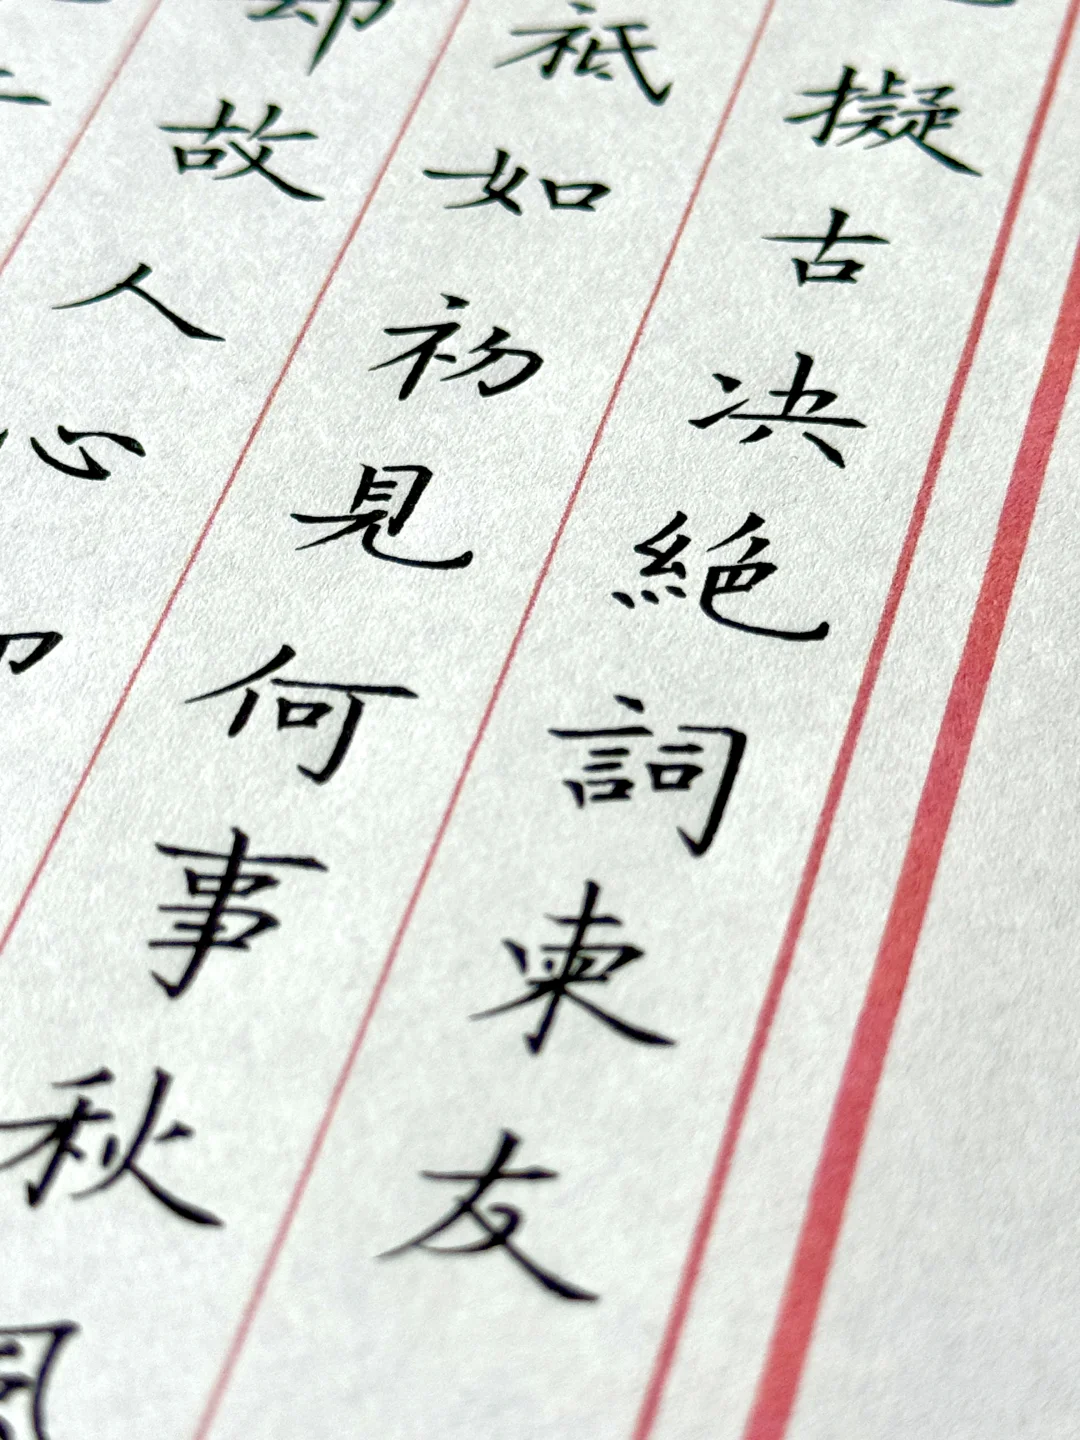 擬古决絶詞柬友
祗如初見何事秋風
却故人心